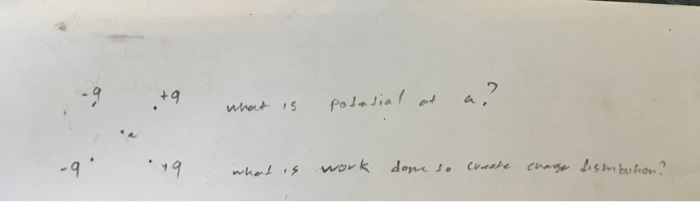 -q +q what is potential at a?
a
-q +q what is work done to create charge distribution?